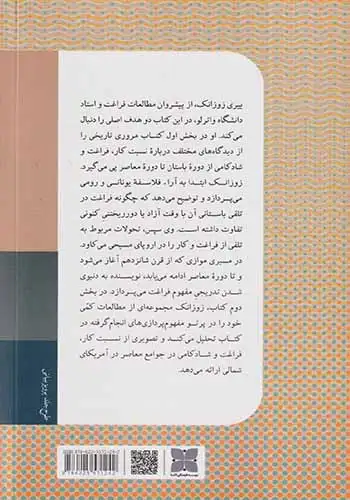 بیری زوزانک، از پیشروان مطالعات فراغت و استاد
دانشگاه واترلو، در این کتاب دو هدف اصلی را دنبال
می‌کند. او در بخش اول کتاب مروری تاریخی را
از دیدگاه‌های مختلف دربارهٔ نسبت کار، فراغت و
شادکامی از دورهٔ باستان تا دورهٔ معاصر پی می‌گیرد.
زوزانک ابتدا به آراء فلاسفهٔ یونانی و رومی
می‌پردازد و توضیح می‌دهد که چگونه فراغت در
تلقی باستانی آن با وقت آزاد یا دورریختنی کنونی
تفاوت داشته است. وی سپس، تحولات مربوط به
تلقی از فراغت و کار را در اروپای مسیحی می‌کاود.
در مسیری موازی که از قرن شانزدهم آغاز می‌شود
و تا دورهٔ معاصر ادامه می‌یابد، نویسنده به دنیوی
شدن تدریجی مفهوم فراغت می‌پردازد. در بخش
دوم کتاب، زوزانک مجموعه‌ای از مطالعات کمّی
خود را در پرتو مفهوم‌پردازی‌های انجام‌گرفته در
کتاب تحلیل می‌کند و تصویری از نسبت کار،
فراغت و شادکامی در جوامع معاصر در آمریکای
شمالی ارائه می‌دهد.
طرح جلد: پرویز بیانی